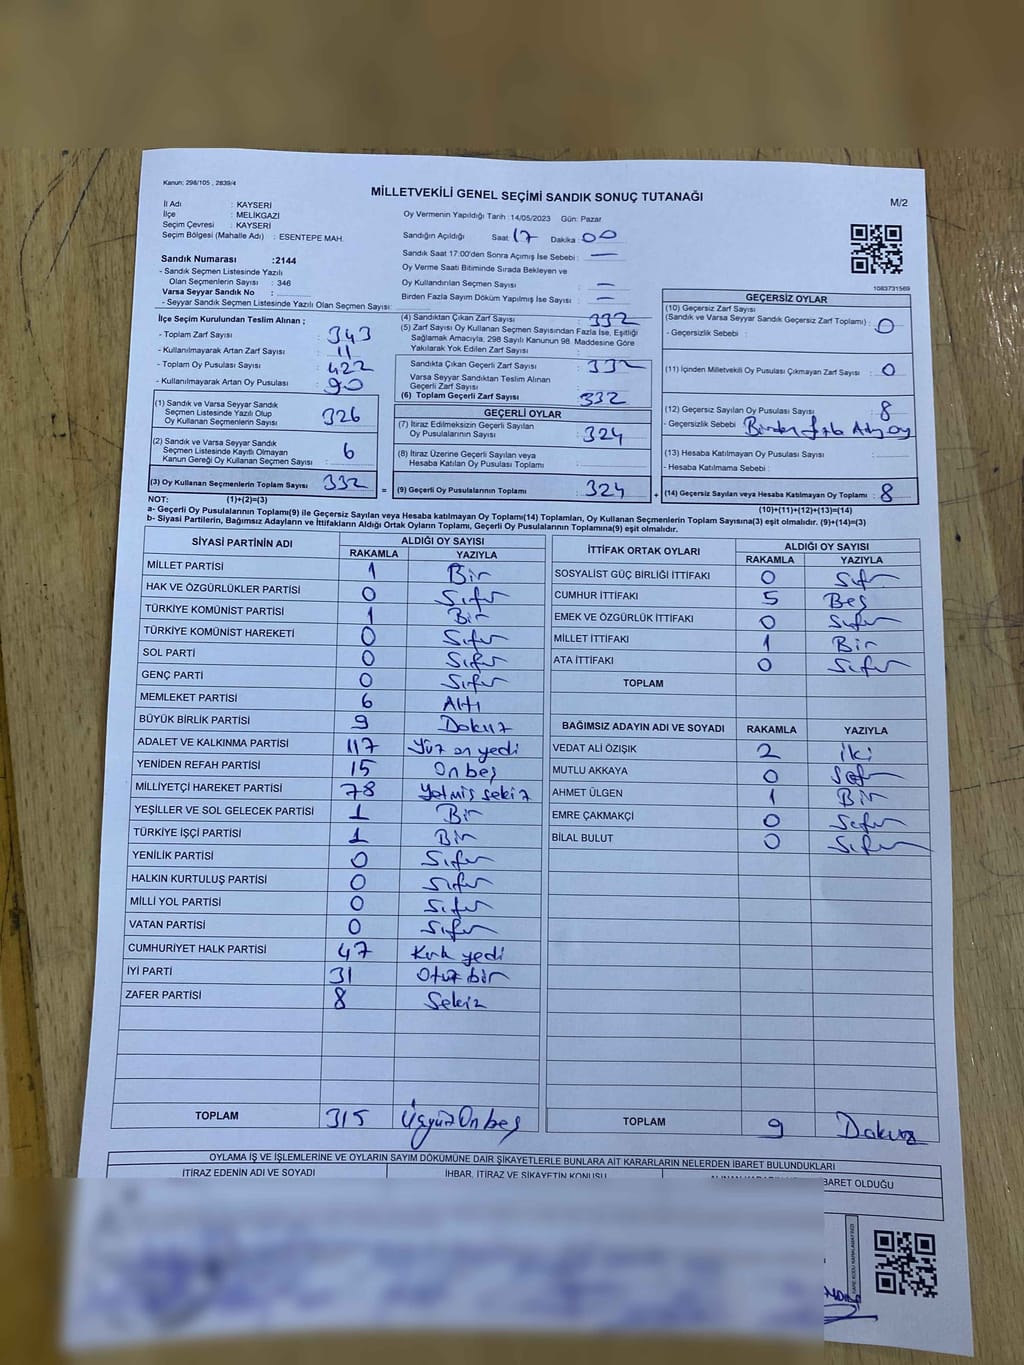 Kanun; 298/105 , 2839/4
MİLLETVEKİLİ GENEL SEÇİMİ SANDIK SONUÇ TUTANAĞI
M/2
İl Adı : KAYSERİ
İlçe : MELİKGAZİ
Seçim Çevresi : KAYSERİ
Seçim Bölgesi (Mahalle Adı) : ESENTEPE MAH.
Sandık Numarası :2144
- Sandık Seçmen Listesinde Yazılı
Olan Seçmenlerin Sayısı : 346
Varsa Seyyar Sandık No :
- Seyyar Sandık Seçmen Listesinde Yazılı Olan Seçmen Sayısı:
Oy Vermenin Yapıldığı Tarih : 14/05/2023 Gün: Pazar
Sandığın Açıldığı Saat: 17 Dakika : 00
Sandık Saat 17:00'den Sonra Açımış İse Sebebi : —
Oy Verme Saati Bitiminde Sırada Bekleyen ve
Oy Kullandırılan Seçmen Sayısı : —
Birden Fazla Sayım Döküm Yapılmış İse Sayısı : —
1083731569
İlçe Seçim Kurulundan Teslim Alınan ;
- Toplam Zarf Sayısı : 343
- Kullanılmayarak Artan Zarf Sayısı : 11
- Toplam Oy Pusulası Sayısı : 422
- Kullanılmayarak Artan Oy Pusulası : 90
(1) Sandık ve Varsa Seyyar Sandık
Seçmen Listesinde Yazılı Olup
Oy Kullanan Seçmenlerin Sayısı : 326
(2) Sandık ve Varsa Seyyar Sandık
Seçmen Listesinde Kayıtlı Olmayan
Kanun Gereği Oy Kullanan Seçmen Sayısı : 6
(3) Oy Kullanan Seçmenlerin Toplam Sayısı : 332
(4) Sandıktan Çıkan Zarf Sayısı : 332
(5) Zarf Sayısı Oy Kullanan Seçmen Sayısından Fazla İse, Eşitliği
Sağlamak Amacıyla, 298 Sayılı Kanunun 98. Maddesine Göre
Yakılarak Yok Edilen Zarf Sayısı :
Sandıkta Çıkan Geçerli Zarf Sayısı : 332
Varsa Seyyar Sandıktan Teslim Alınan
Geçerli Zarf Sayısı :
(6) Toplam Geçerli Zarf Sayısı : 332
GEÇERLİ OYLAR
(7) İtiraz Edilmeksizin Geçerli Sayılan
Oy Pusulalarının Sayısı : 324
(8) İtiraz Üzerine Geçerli Sayılan veya
Hesaba Katılan Oy Pusulası Toplamı :
= (9) Geçerli Oy Pusulalarının Toplamı : 324 +
GEÇERSİZ OYLAR
(10) Geçersiz Zarf Sayısı
(Sandık ve Varsa Seyyar Sandık Geçersiz Zarf Toplamı) : 0
- Geçersizlik Sebebi :
(11) İçinden Milletvekili Oy Pusulası Çıkmayan Zarf Sayısı : 0
(12) Geçersiz Sayılan Oy Pusulası Sayısı : 8
- Geçersizlik Sebebi : Birden
(13) Hesaba Katılmayan Oy Pusulası Sayısı :
- Hesaba Katılmama Sebebi :
(14) Geçersiz Sayılan veya Hesaba Katılmayan Oy Toplamı : 8
NOT: (1)+(2)=(3)
(10)+(11)+(12)+(13)=(14)
a- Geçerli Oy Pusulaları Toplamı(9) ile Geçersiz Sayılan veya Hesaba Katılmayan Oy Toplamı(14) Toplamları, Oy Kullanan Seçmenlerin Toplam Sayısına(3) eşit olmalıdır. (9)+(14)=(3)
b- Siyasi Partilerin, Bağımsız Adayların ve İttifakların Aldığı Ortak Oyların Toplamı, Geçerli Oy Pusulalarının Toplamına(9) eşit olmalıdır.
SİYASİ PARTİNİN ADI ALDIĞI OY SAYISI
RAKAMLA YAZIYLA
MİLLET PARTİSİ 1 Bir
HAK VE ÖZGÜRLÜKLER PARTİSİ 0 Sıfır
TÜRKİYE KOMÜNİST PARTİSİ 1 Bir
TÜRKİYE KOMÜNİST HAREKETİ 0 Sıfır
SOL PARTİ 0 Sıfır
GENÇ PARTİ 0 Sıfır
MEMLEKET PARTİSİ 6 Altı
BÜYÜK BİRLİK PARTİSİ 9 Dokuz
ADALET VE KALKINMA PARTİSİ 117 Yüz on yedi
YENİDEN REFAH PARTİSİ 15 On beş
MİLLİYETÇİ HAREKET PARTİSİ 78 Yetmiş sekiz
YEŞİLLER VE SOL GELECEK PARTİSİ 1 Bir
TÜRKİYE İŞÇİ PARTİSİ 1 Bir
YENİLİK PARTİSİ 0 Sıfır
HALKIN KURTULUŞ PARTİSİ 0 Sıfır
MİLLİ YOL PARTİSİ 0 Sıfır
VATAN PARTİSİ 0 Sıfır
CUMHURİYET HALK PARTİSİ 47 Kırk yedi
İYİ PARTİ 31 Otuz bir
ZAFER PARTİSİ 8 Sekiz
TOPLAM 315 ÜçyüzOnbeş
İTTİFAK ORTAK OYLARI ALDIĞI OY SAYISI
RAKAMLA YAZIYLA
SOSYALİST GÜÇ BİRLİĞİ İTTİFAKI 0 Sıfır
CUMHUR İTTİFAKI 5 Beş
EMEK VE ÖZGÜRLÜK İTTİFAKI 0 Sıfır
MİLLET İTTİFAKI 1 Bir
ATA İTTİFAKI 0 Sıfır
TOPLAM
BAĞIMSIZ ADAYIN ADI VE SOYADI RAKAMLA YAZIYLA
VEDAT ALİ ÖZIŞIK 2 iki
MUTLU AKKAYA 0 Sıfır
AHMET ÜLGEN 1 Bir
EMRE ÇAKMAKÇİ 0 Sıfır
BİLAL BULUT 0 Sıfır
TOPLAM 9 Dokuz
OYLAMA İŞ VE İŞLEMLERİNE VE OYLARIN SAYIM DÖKÜMÜNE DAİR ŞİKAYETLERLE BUNLARA AİT KARARLARIN NELERDEN İBARET BULUNDUKLARI
İTİRAZ EDENİN ADI VE SOYADI İHBAR, İTİRAZ VE ŞİKAYETİN KONUSU İBARET OLDUĞU